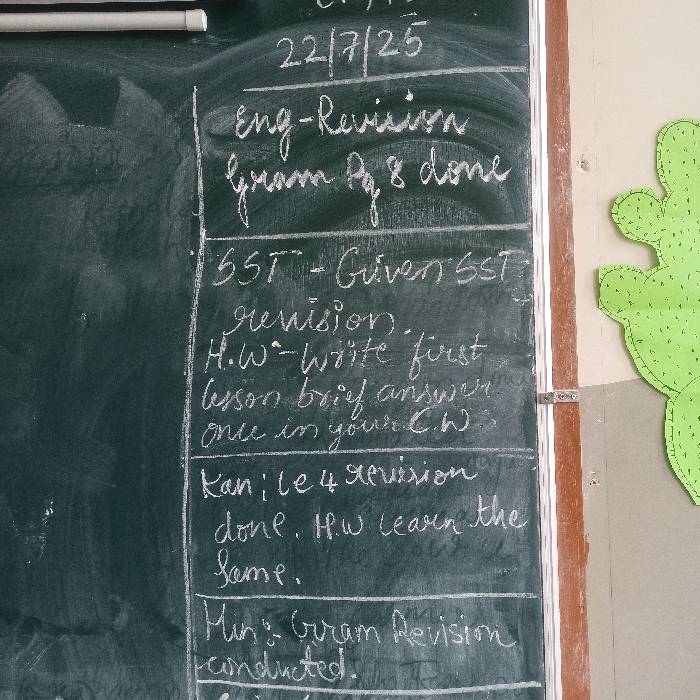 22/7/25
Eng-Revision
Gram Pg 8 done
SST - Given SST
revision.
H.W - Write first
lesson brief answer
once in your C.W
Kan: Le 4 revision
done. H.W Learn the
Same.
Hin:- Gram Revision
conducted.